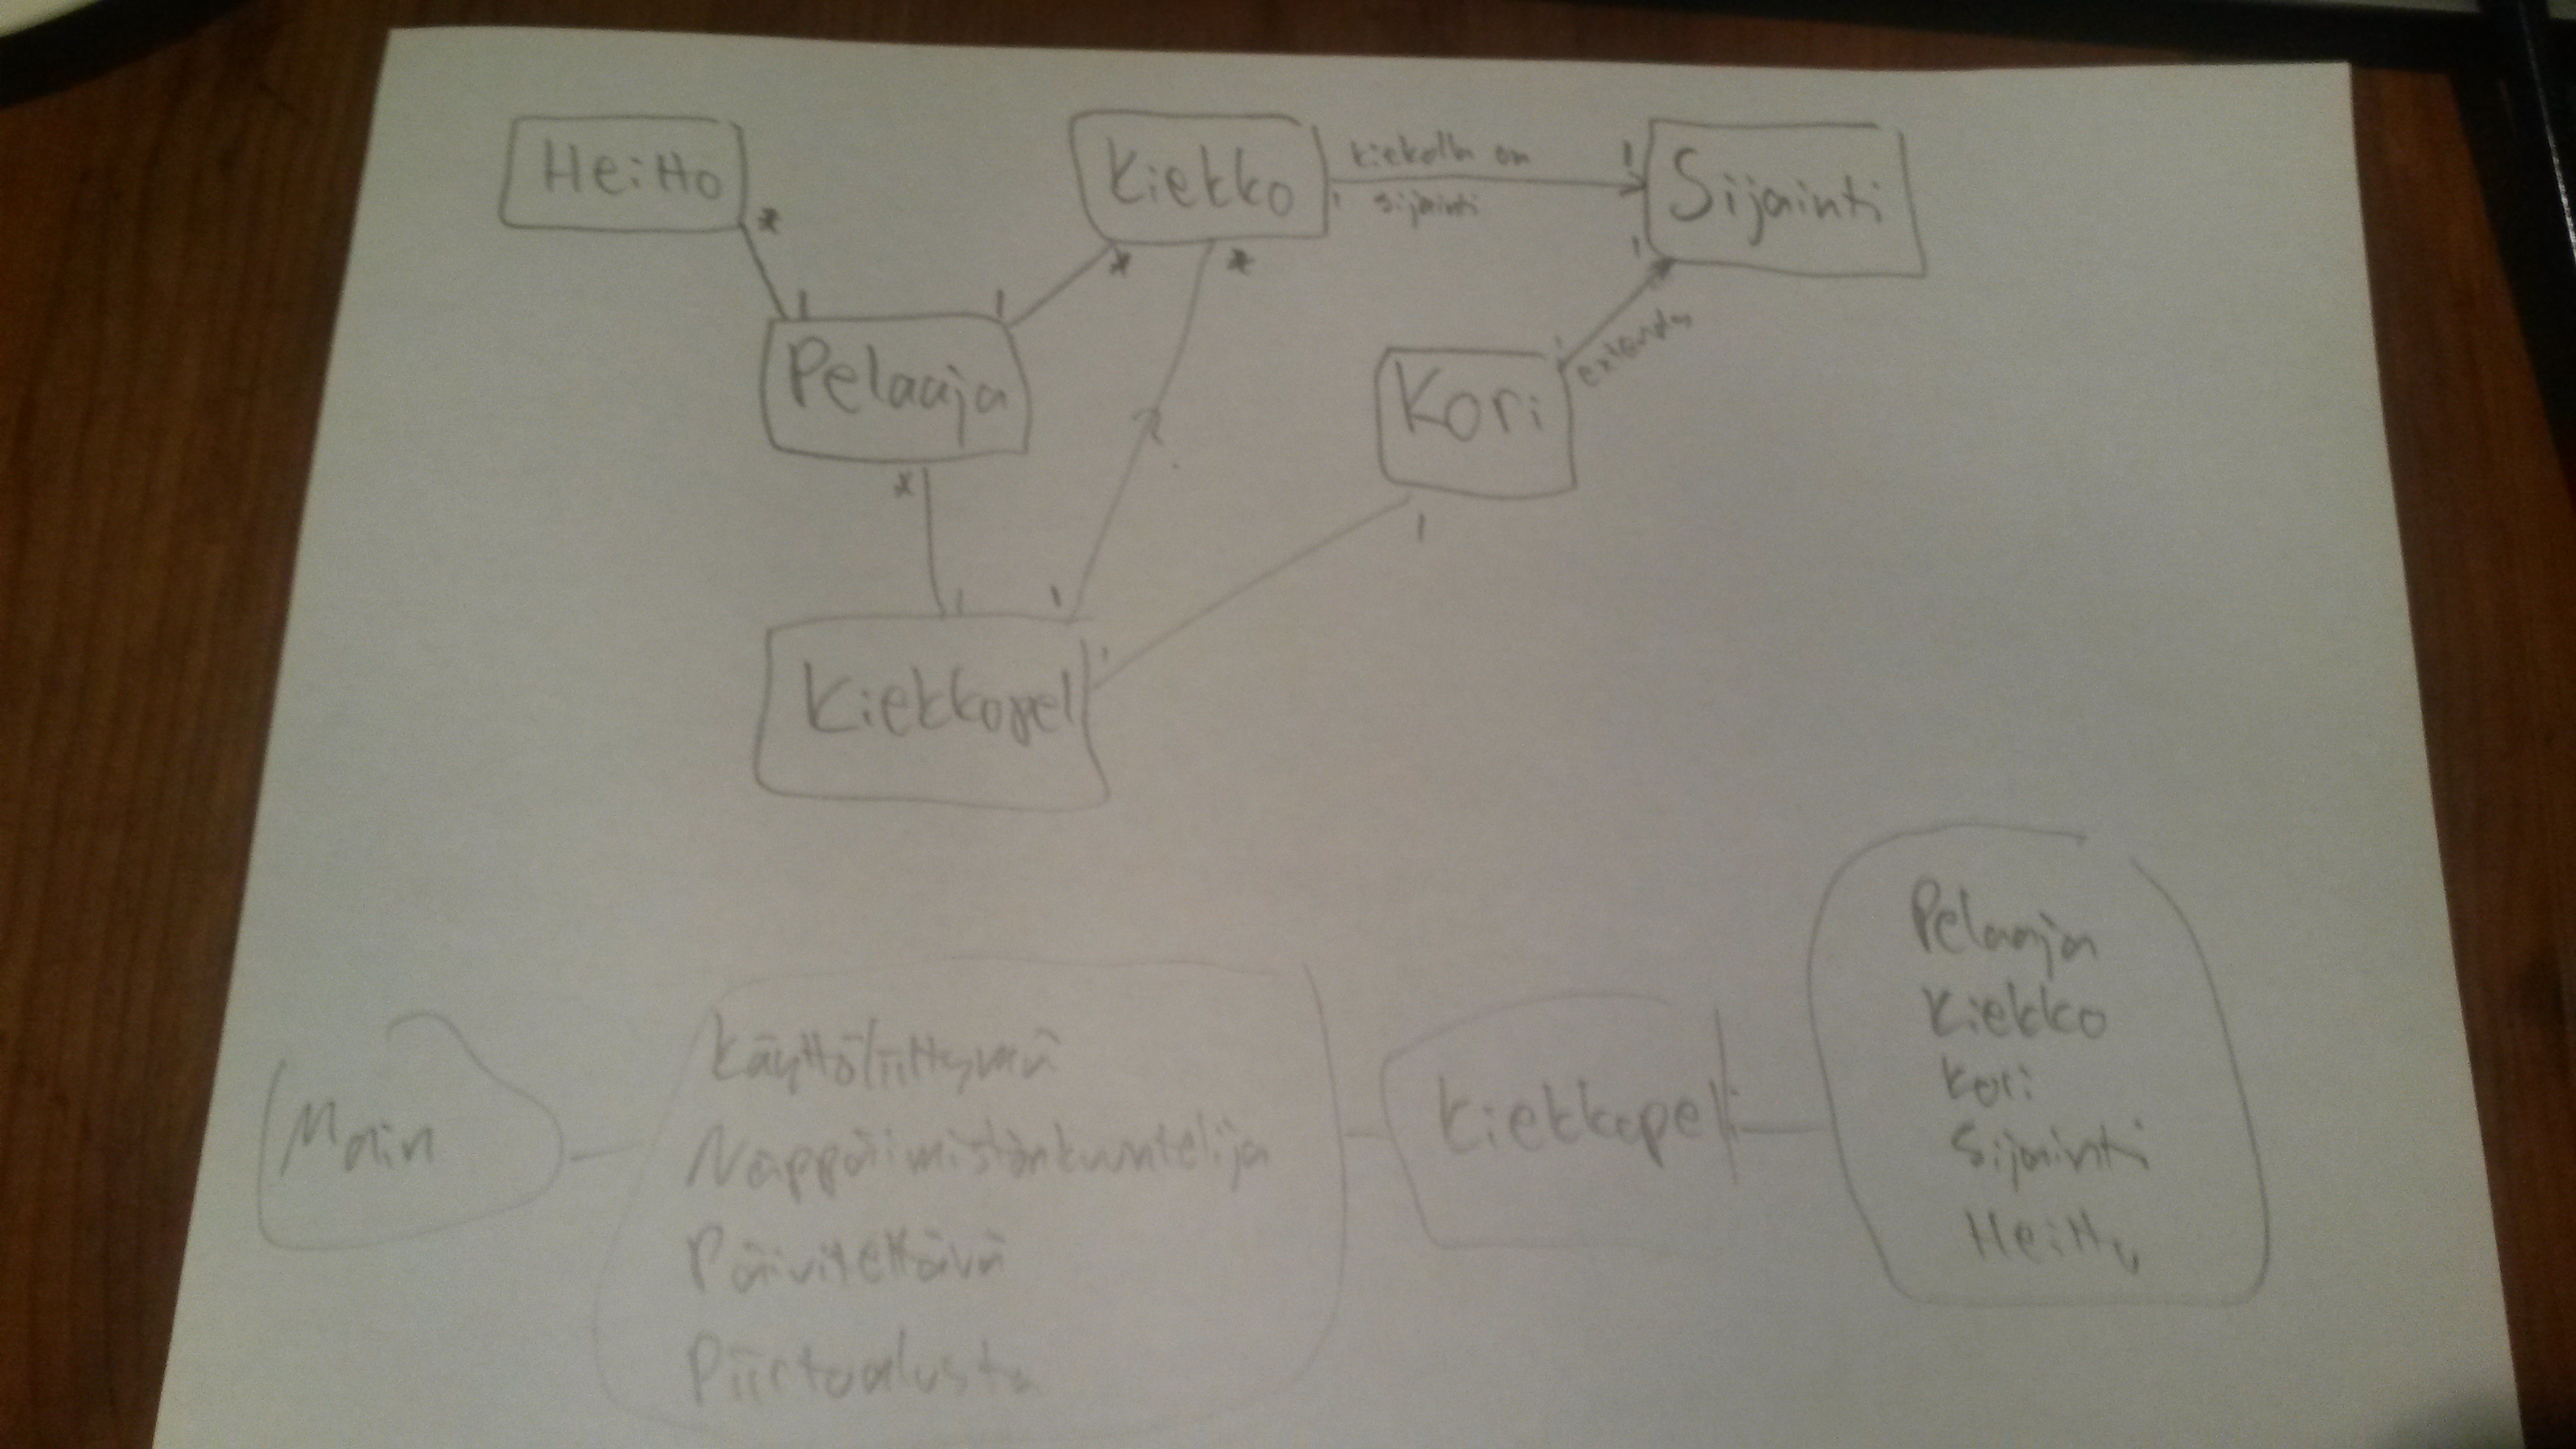 Heitto
*
1
Kiekko
*
*
kiekolla on
sijainti
1
1
Sijainti
1
Pelaaja
1
*
Kori
1
extends
1
1
1
1
Kiekkopeli
Main
Käyttöliittymä
Näppäimistönkuuntelija
Päivitettävä
Piirtoalusta
Kiekkopeli
Pelaaja
Kiekko
Kori
Sijainti
Heitto